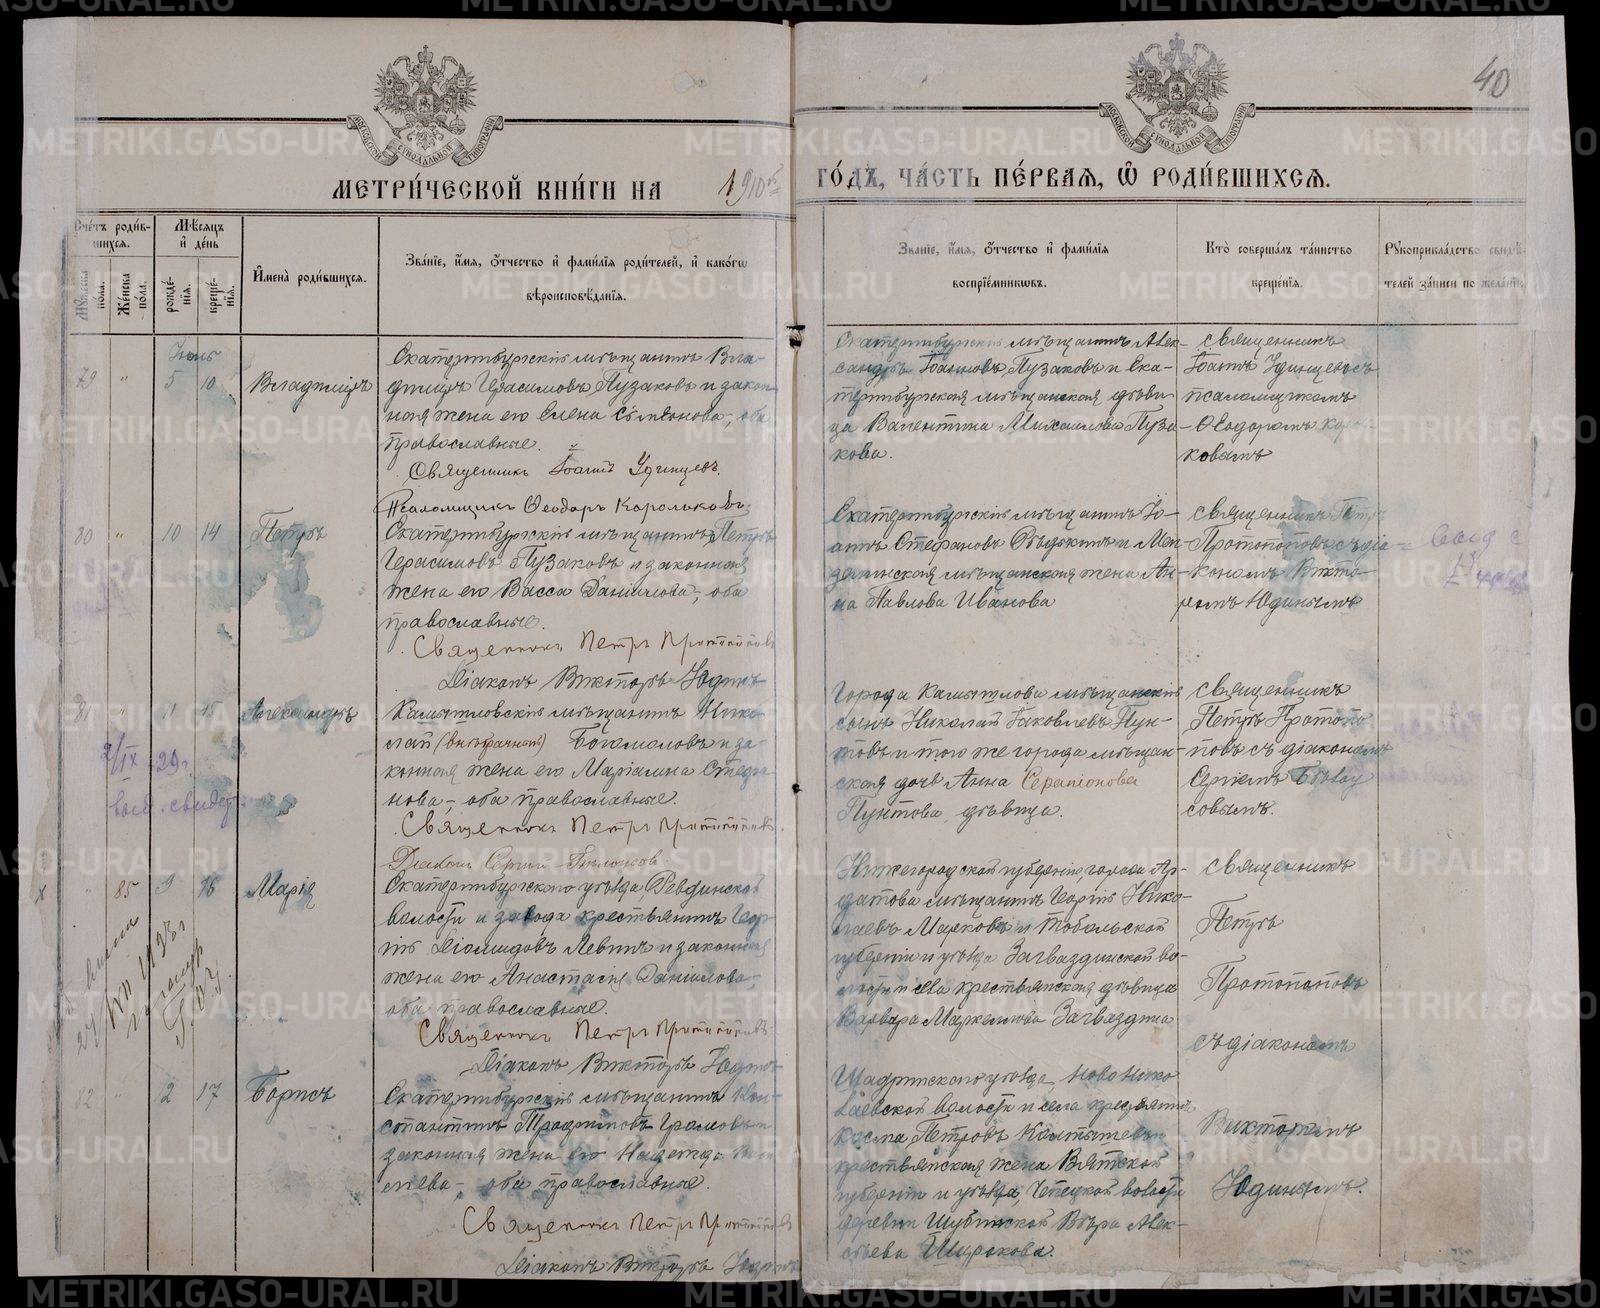 40
МОСКОВСКОЙ СѴНОДАЛЬНОЙ ТИПОГРАФІИ
МОСКОВСКОЙ СѴНОДАЛЬНОЙ ТИПОГРАФІИ
МЕТРИ́ЧЕСКОЙ КНИ́ГИ НА 1910й ГО́ДЪ, ЧА́СТЬ ПЕ́РВАЯ, Ѡ РОДИ́ВШИХСЯ.
Сче́тъ роди́вшихся.
Мꙋ́жеска по́ла.
Же́нска по́ла.
Мѣ́сяцъ и де́нь
рожде́нія.
креще́нія.
Имена̀ роди́вшихся.
Зва́ніе, и́мя, ѻ́тчество и фами́лія роди́телей, и како́гѡ
вѣроисповѣ́данія.
Зва́ніе, и́мя, ѻ́тчество и фами́лія
воспріе́мниковъ.
Кто̀ соверша́лъ та́инство
креще́нія.
Рꙋкоприкла́дство свидѣ́телей за́писи по жела́нію.
Іюль
79 " 5 10 Владиміръ
Екатеринбургскій мѣщанинъ Вла-
диміръ Герасимовъ Пузаковъ и закон-
ная жена его Елена Сѵмеонова, оба
православные.
Священникъ Іоаннъ Удинцевъ.
Псаломщикъ Ѳеодоръ Корольковъ.
Екатеринбургскій мѣщанинъ Алек-
сандръ Іоанновъ Пузаковъ и Ека-
теринбургская мѣщанская дѣви-
ца Валентина Михаилова Пуза-
кова.
Священникъ
Іоаннъ Удинцевъ съ
псаломщикомъ
Ѳеодоромъ Король-
ковымъ
80 " 10 14 Петръ
Екатеринбургскій мѣщанинъ Петръ
Герасимовъ Пузаковъ и законная
жена его Васса Даніилова, оба
православные.
Священникъ Петръ Протопоповъ
Діаконъ Викторъ Юдинъ
Екатеринбургскій мѣщанинъ Іо-
аннъ Стефановъ Рѣдькинъ и Мен-
зелинская мѣщанская жена Ан-
на Павлова Иванова
Священникъ Петръ
Протопоповъ съ діа-
кономъ Викто-
ромъ Юдинымъ
81 " 11 15 Александръ
2/IX 29 г.
выд. свидет.
Камышловскій мѣщанинъ Нико-
лай (внебрачный) Богомоловъ и за-
конная жена его Маріамна Стефа-
нова, оба православные.
Священникъ Петръ Протопоповъ.
Діаконъ Сергій Бѣлоусовъ
Города Камышлова мѣщанскій
сынъ Николай Іаковлевъ Пун-
товъ и того же города мѣщан-
ская дочь Анна Серапіонова
Пунтова, дѣвица.
Священникъ
Петръ Протопо-
повъ съ діакономъ
Сергіемъ Бѣлоу-
совымъ.
х " 85 9 16 Марія
Екатеринбургскаго уѣзда, Ревдинской
волости и завода крестьянинъ Геор-
гій Діомидовъ Левинъ и законная
жена его Анастасія Даніилова,
оба православные.
Священникъ Петръ Протопоповъ
Діаконъ Викторъ Юдинъ
Нижегородской губерніи, города Ар-
датова мѣщанинъ Георгій Нико-
лаевъ Марковъ и Тобольской
губерніи и уѣзда Загваздинской во-
лости и села крестьянская дѣвица
Варвара Маркеллова Загваздина
Священникъ
Петръ
Протопоповъ
съ діакономъ
Викторомъ
Юдинымъ.
82 " 2 17 Борисъ
Екатеринбургскій мѣщанинъ Кон-
стантинъ Трифоновъ Громовъ и
законная жена его Надежда
оба православные.
Священникъ Петръ Протопоповъ
Діаконъ Викторъ Юдинъ
Шадринскаго уѣзда, Новонико-
лаевской волости и села крестьянинъ
Косма Петровъ Колтышевъ и
крестьянская жена Вятской
губерніи и уѣзда, Чепецкой волости
деревни Шубинской Вѣра Алек-
сѣева Широкова.
METRIKI.GASO-URAL.RU